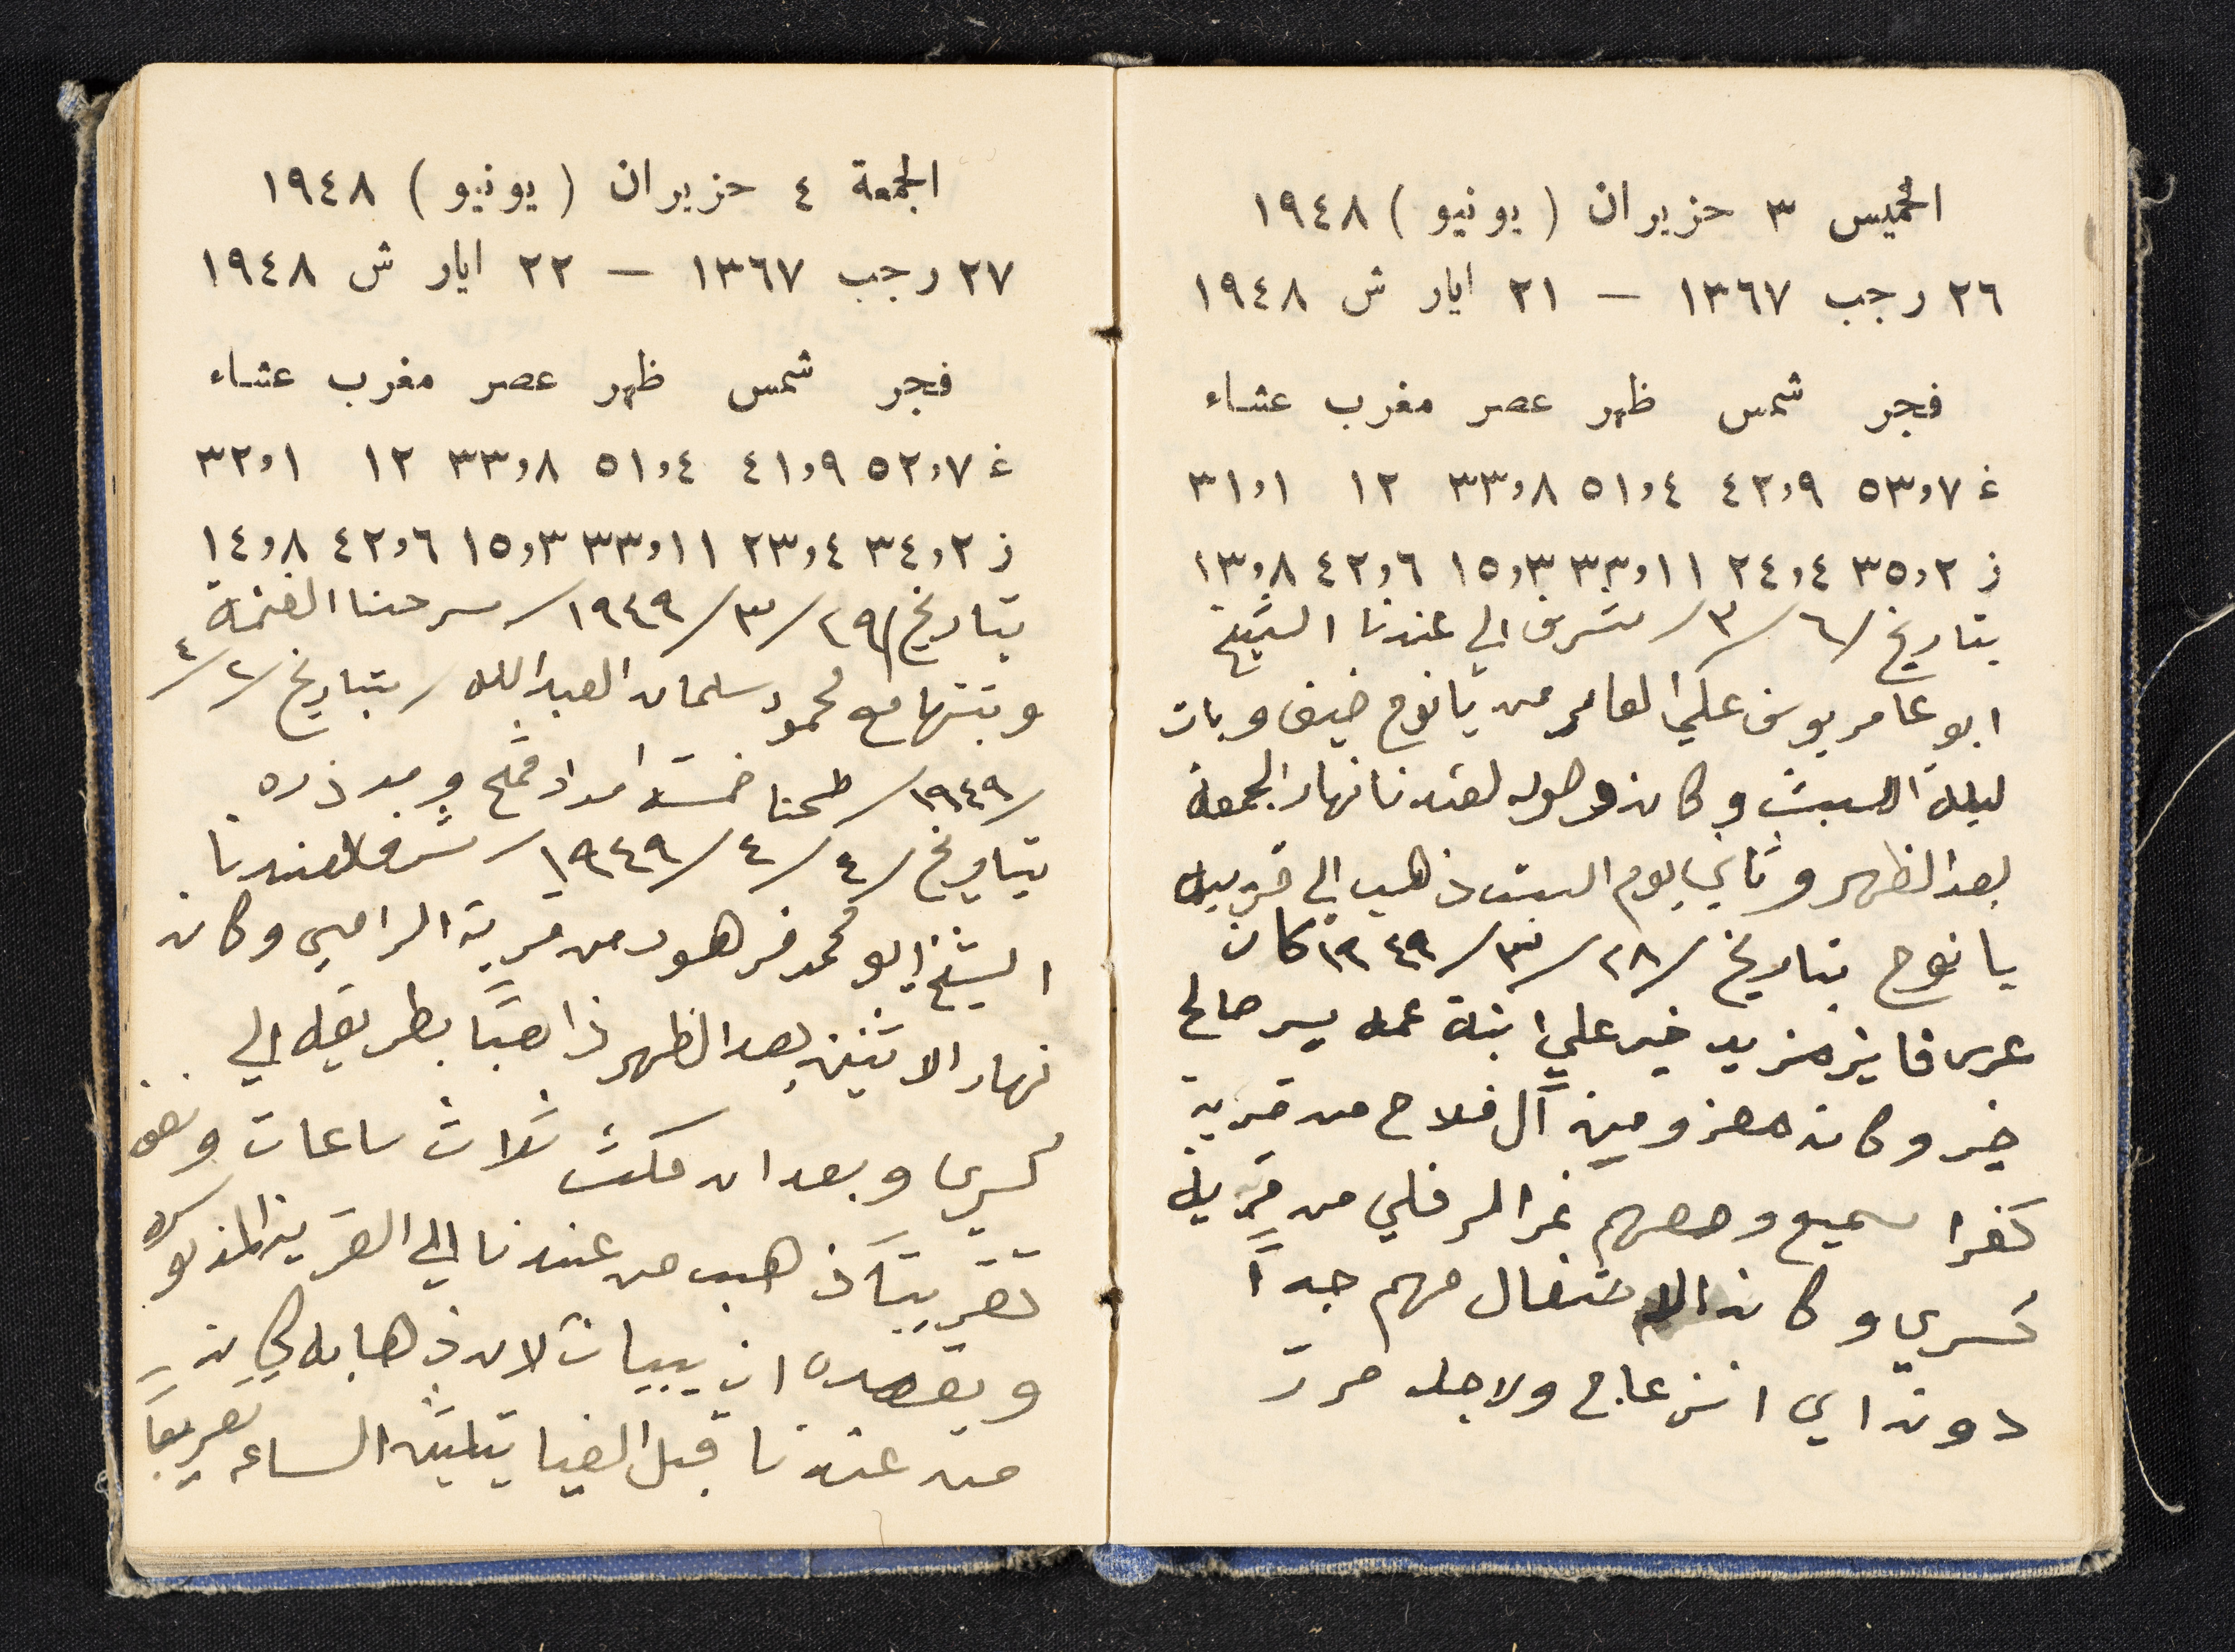 الخميس ٣ حزيران (يونيو) ١٩٤٨
٢٦ رجب ١٣٦٧ – ٢١ ايار ش ١٩٤٨
فجر شمس ظهر عصر مغرب عشاء
غ ٥٣,٧ ٤٢,٩ ٥١,٤ ٣٣,٨ ١٢ ٣١,١
ز ٣٥,٢ ٢٤,٤ ٣٣,١١ ١٥,٣ ٤٢,٦ ١٣,٨
بتاريخ /٦/٣/ تشرف الي عندنا الشيخ
ابو عامر يوسف علي العامر من يانوح ضيف وبات
ليلة السبت وكان وصوله لعندنا نهار الجمعة
بعد الظهر وثاني يوم السبت ذهب الي قريه
يانوح بتاريخ /٢٨/٣/١٩٤٩ كان
عرس فايز مزيد خير علي ابنة عمه يسر صالح
خير وكان معزومين آل فلاح من قرية
كفرا سميع ومعهم نمر الرفلي من قرية
كسري وكان الاحتفال مهم جداً
دون اي انزعاج ولا جدل مرر
الجمعة ٤ حزيران (يونيو) ١٩٤٨
٢٧ رجب ١٣٦٧ – ٢٢ ايار ش ١٩٤٨
فجر شمس ظهر عصر مغرب عشاء
غ ٥٢,٧ ٤١,٩ ٥١,٤ ٣٣,٨ ١٢ ٣٢,١
ز ٣٤,٢ ٢٣,٤ ٣٣,١١ ١٥,٣ ٤٢,٦ ١٤,٨
بتاريخ /٢٩/٣/١٩٤٩/ سرحنا الغنمة
وبنتها مع محمود سلمان العبدالله / بتاريخ /٢/٤
/١٩٤٩/ طحنا خمسة امداد قمح ومد ذره
بتاريخ /٤/٤/١٩٤٩/ تشرف لعندنا
الشيخ ابو محمد فرهود من قرية الرامي وكان
نهار الاثنين بعد الظهر ذاهباً بطريقه الي
كسري وبعد ان مكث ثلاث ساعات ونصف
تقريباً ذهب من عندنا الي القرية المذكوره
وبقصده ان يبيات لان ذهابه كان
من عندنا قبل الغياب بثلث الساعه تقريباً